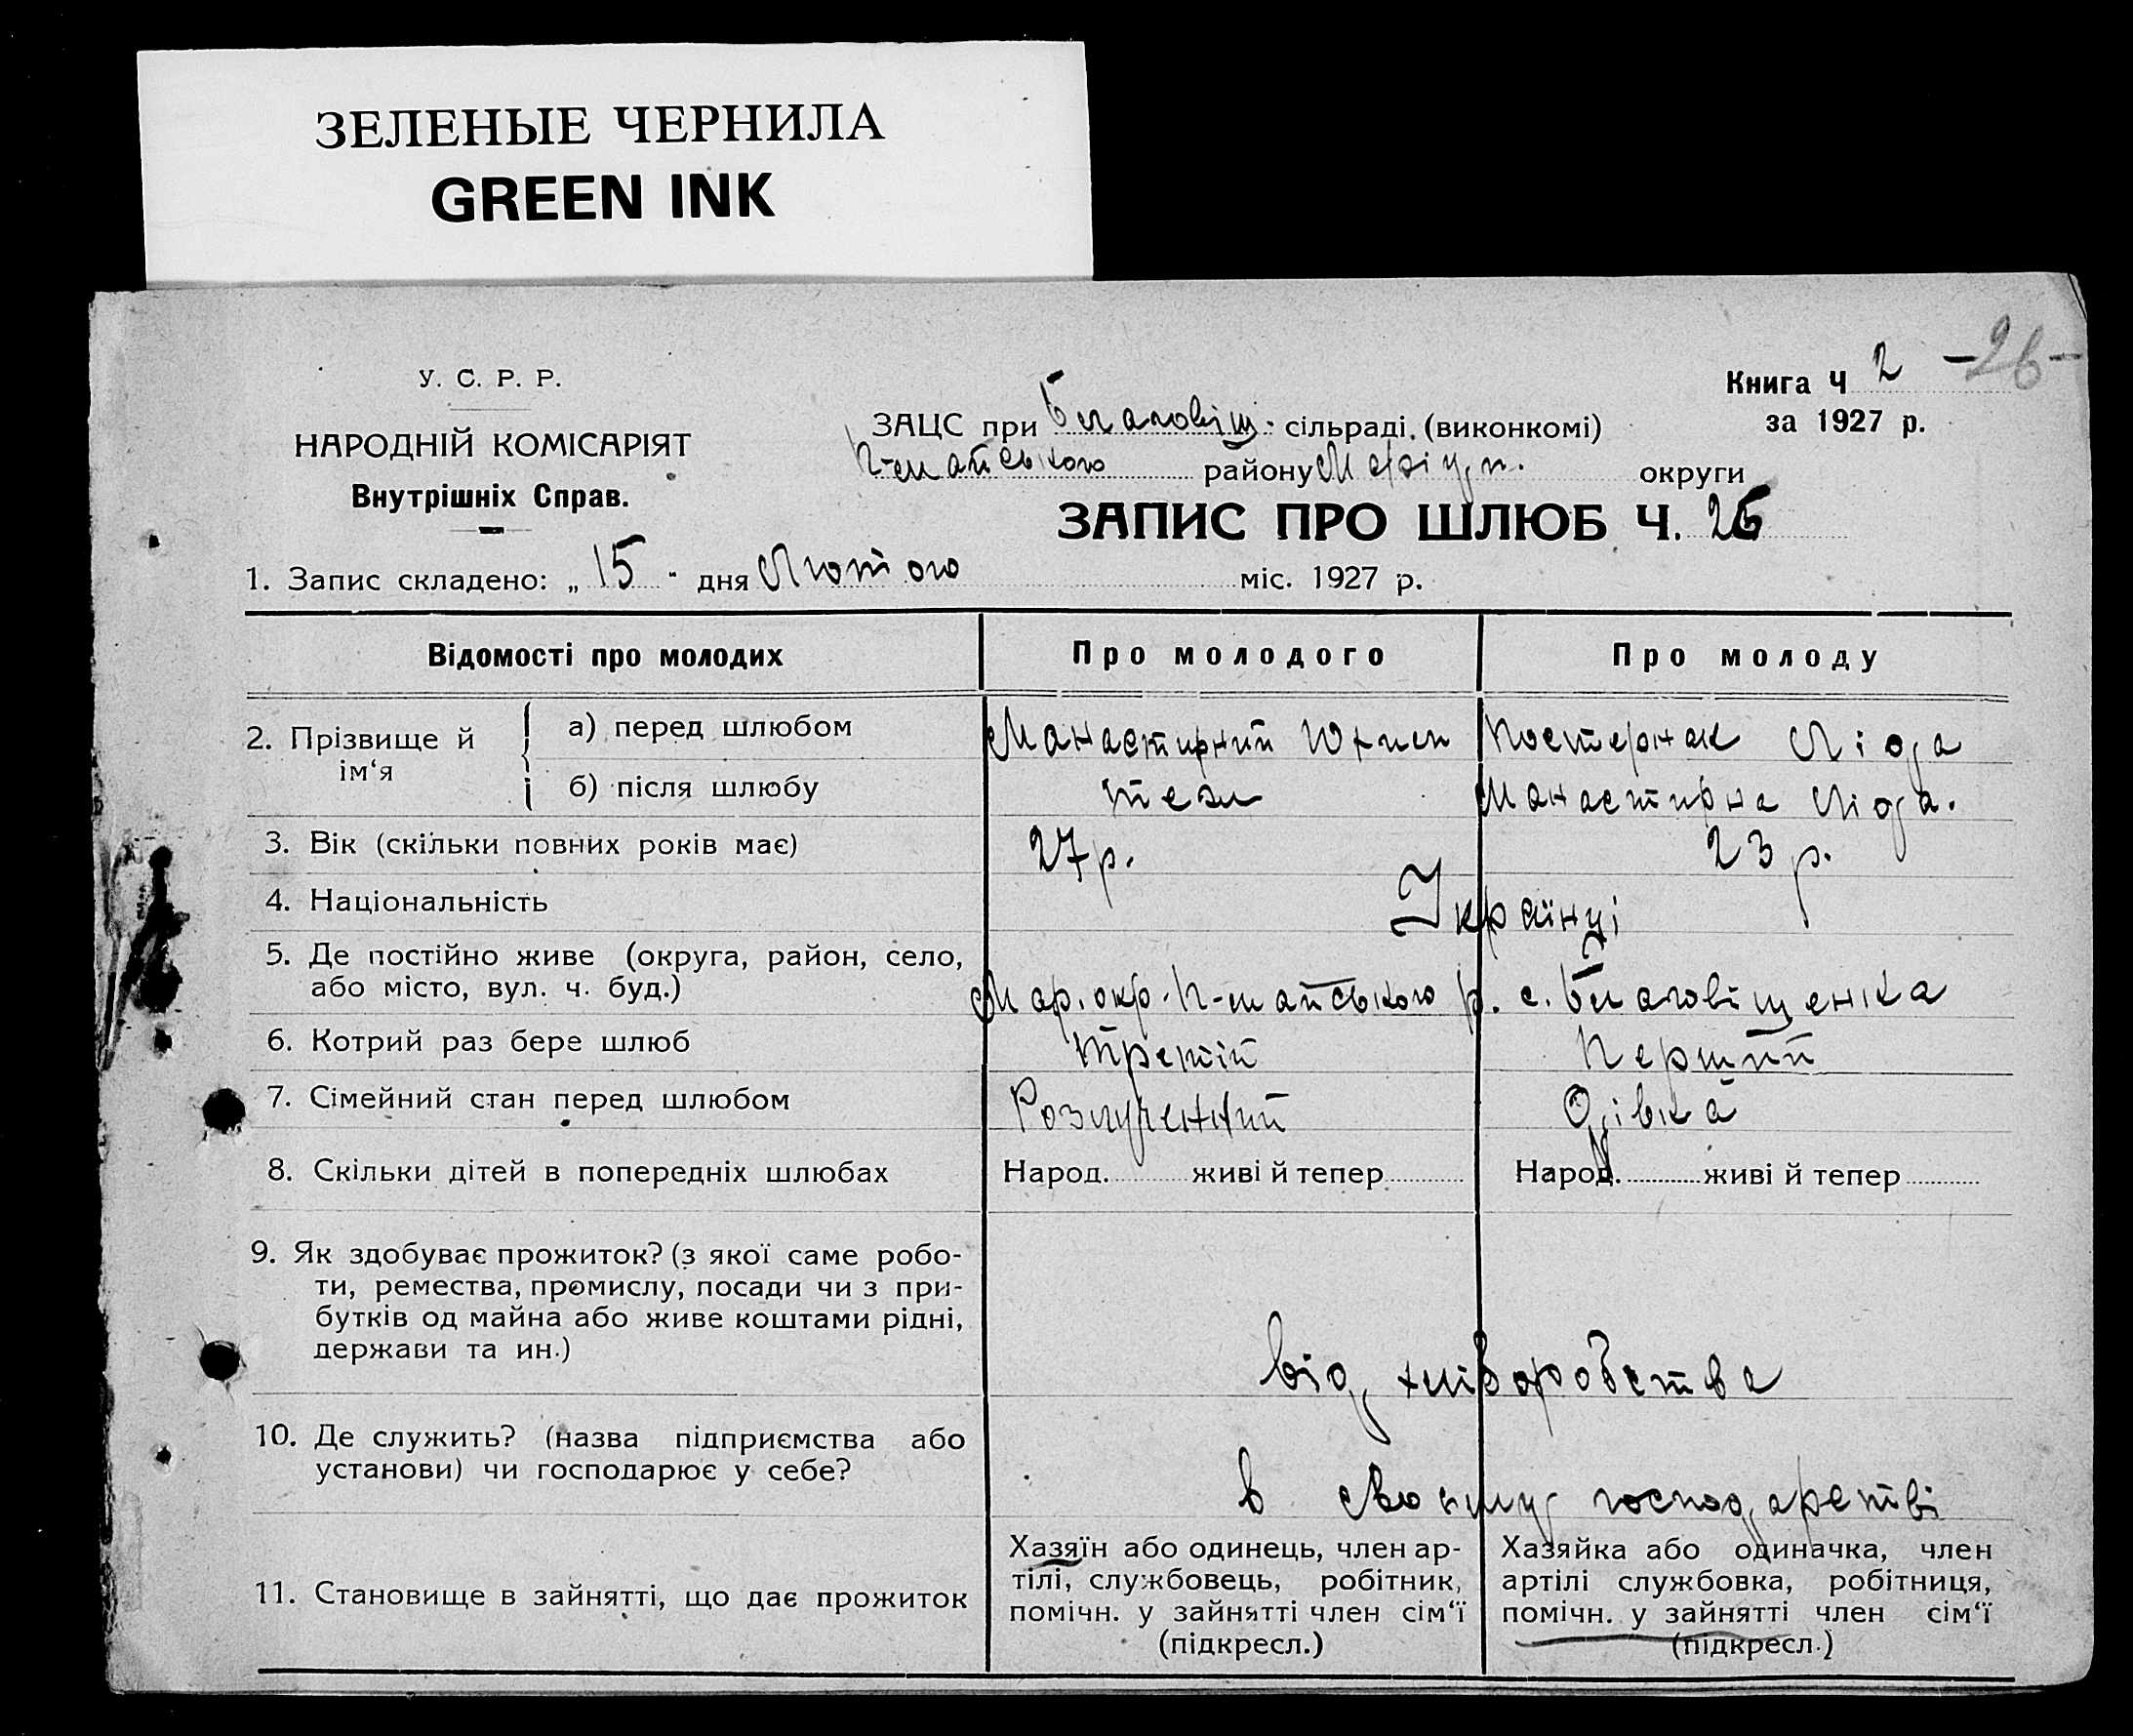 ЗЕЛЕНЫЕ ЧЕРНИЛА
GREEN INK
-26-
Книга Ч 2
за 1927 р.
У. С. Р. Р.
НАРОДНІЙ КОМІСАРІЯТ
Внутрішніх Справ.
ЗАЦС при Благовіщ. сільраді, (виконкомі)
району Маріуп. округи
ЗАПИС ПРО ШЛЮБ Ч. 26
1. Запис складено: „ 15 " дня Лютого міс. 1927 р.
Відомості про молодих Про молодого Про молоду
2. Прізвище й ім‘я
а) перед шлюбом Манастирний Постернак Ліда
б) після шлюбу теж Манастирна Ліда.
3. Вік (скільки повних років має) 27 р. 23 р.
4. Національність Українці
5. Де постійно живе (округа, район, село,
або місто, вул. ч. буд.) Мар. окр. р. с. Благовіщенка
6. Котрий раз бере шлюб Третій Перший
7. Сімейний стан перед шлюбом Розлученний Дівка
8. Скільки дітей в попередніх шлюбах Народ. живі й тепер Народ. живі й тепер
9. Як здобуває прожиток? (з якої саме робо-
ти, ремества, промислу, посади чи з при-
бутків од майна або живе коштами рідні,
держави та ин.)
від хліборобства
10. Де служить? (назва підприємства або
установи) чи господарює у себе?
в своєму господарстві
11. Становище в зайнятті, що дає прожиток
Хазяїн або одинець, член ар-
тілі, службовець, робітник,
помічн. у зайнятті член сім‘ї
(підкресл.)
Хазяйка або одиначка, член
артілі службовка, робітниця,
помічн. у зайнятті член сім‘ї
(підкресл.)